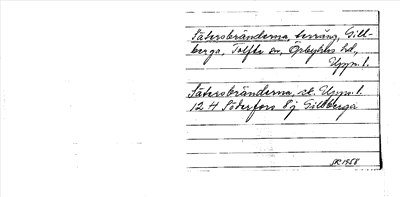 Sätersbränderna, terräng, Gill-
berga, Tolfta sn, Örbyhus hd,
Upps. l.
Sätersbränderna, sk. Upps. l.
12 4 Söderfors 8j Gillberga
SK 1958